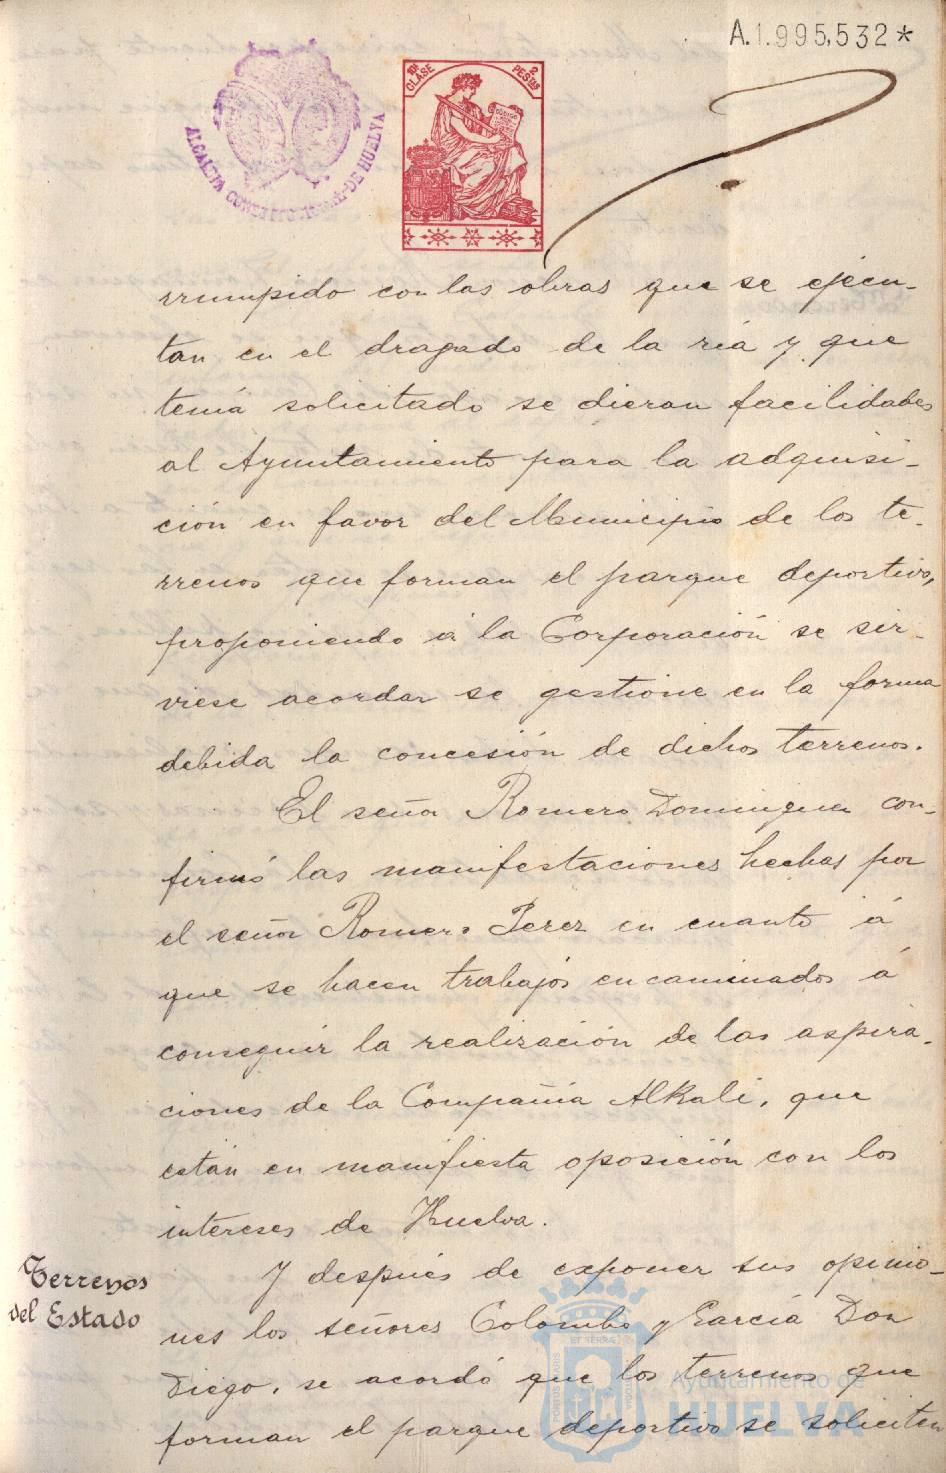 A.1.995,532*
10ª CLASE
2 PESTAS
ALCALDIA CONSTITUCIONAL DE HUELVA
rrumpido con las obras que se ejecu-
tan en el dragado de la ría y que
tenía solicitado se dieran facilidades
al Ayuntamiento para la adquisi-
ción en favor del Municipio de los te-
rrenos que forman el parque deportivo,
proponiendo á la Corporación se sir-
viese acordar se gestione en la forma
debida la concesión de dichos terrenos.
El señor Romero Dominguez con-
firmó las manifestaciones hechas por
el señor Romero Perez en cuanto á
que se hacen trabajos encaminados á
conseguir la realización de las aspira-
ciones de la Compañia Alkali, que
están en manifiesta oposición con los
intereses de Huelva.
Terrenos
del Estado
Y después de exponer sus opinio-
nes los señores Colombo y García Don
Diego, se acordó que los terrenos que
forman el parque deportivo se soliciten
Ayuntamiento de
HUELVA